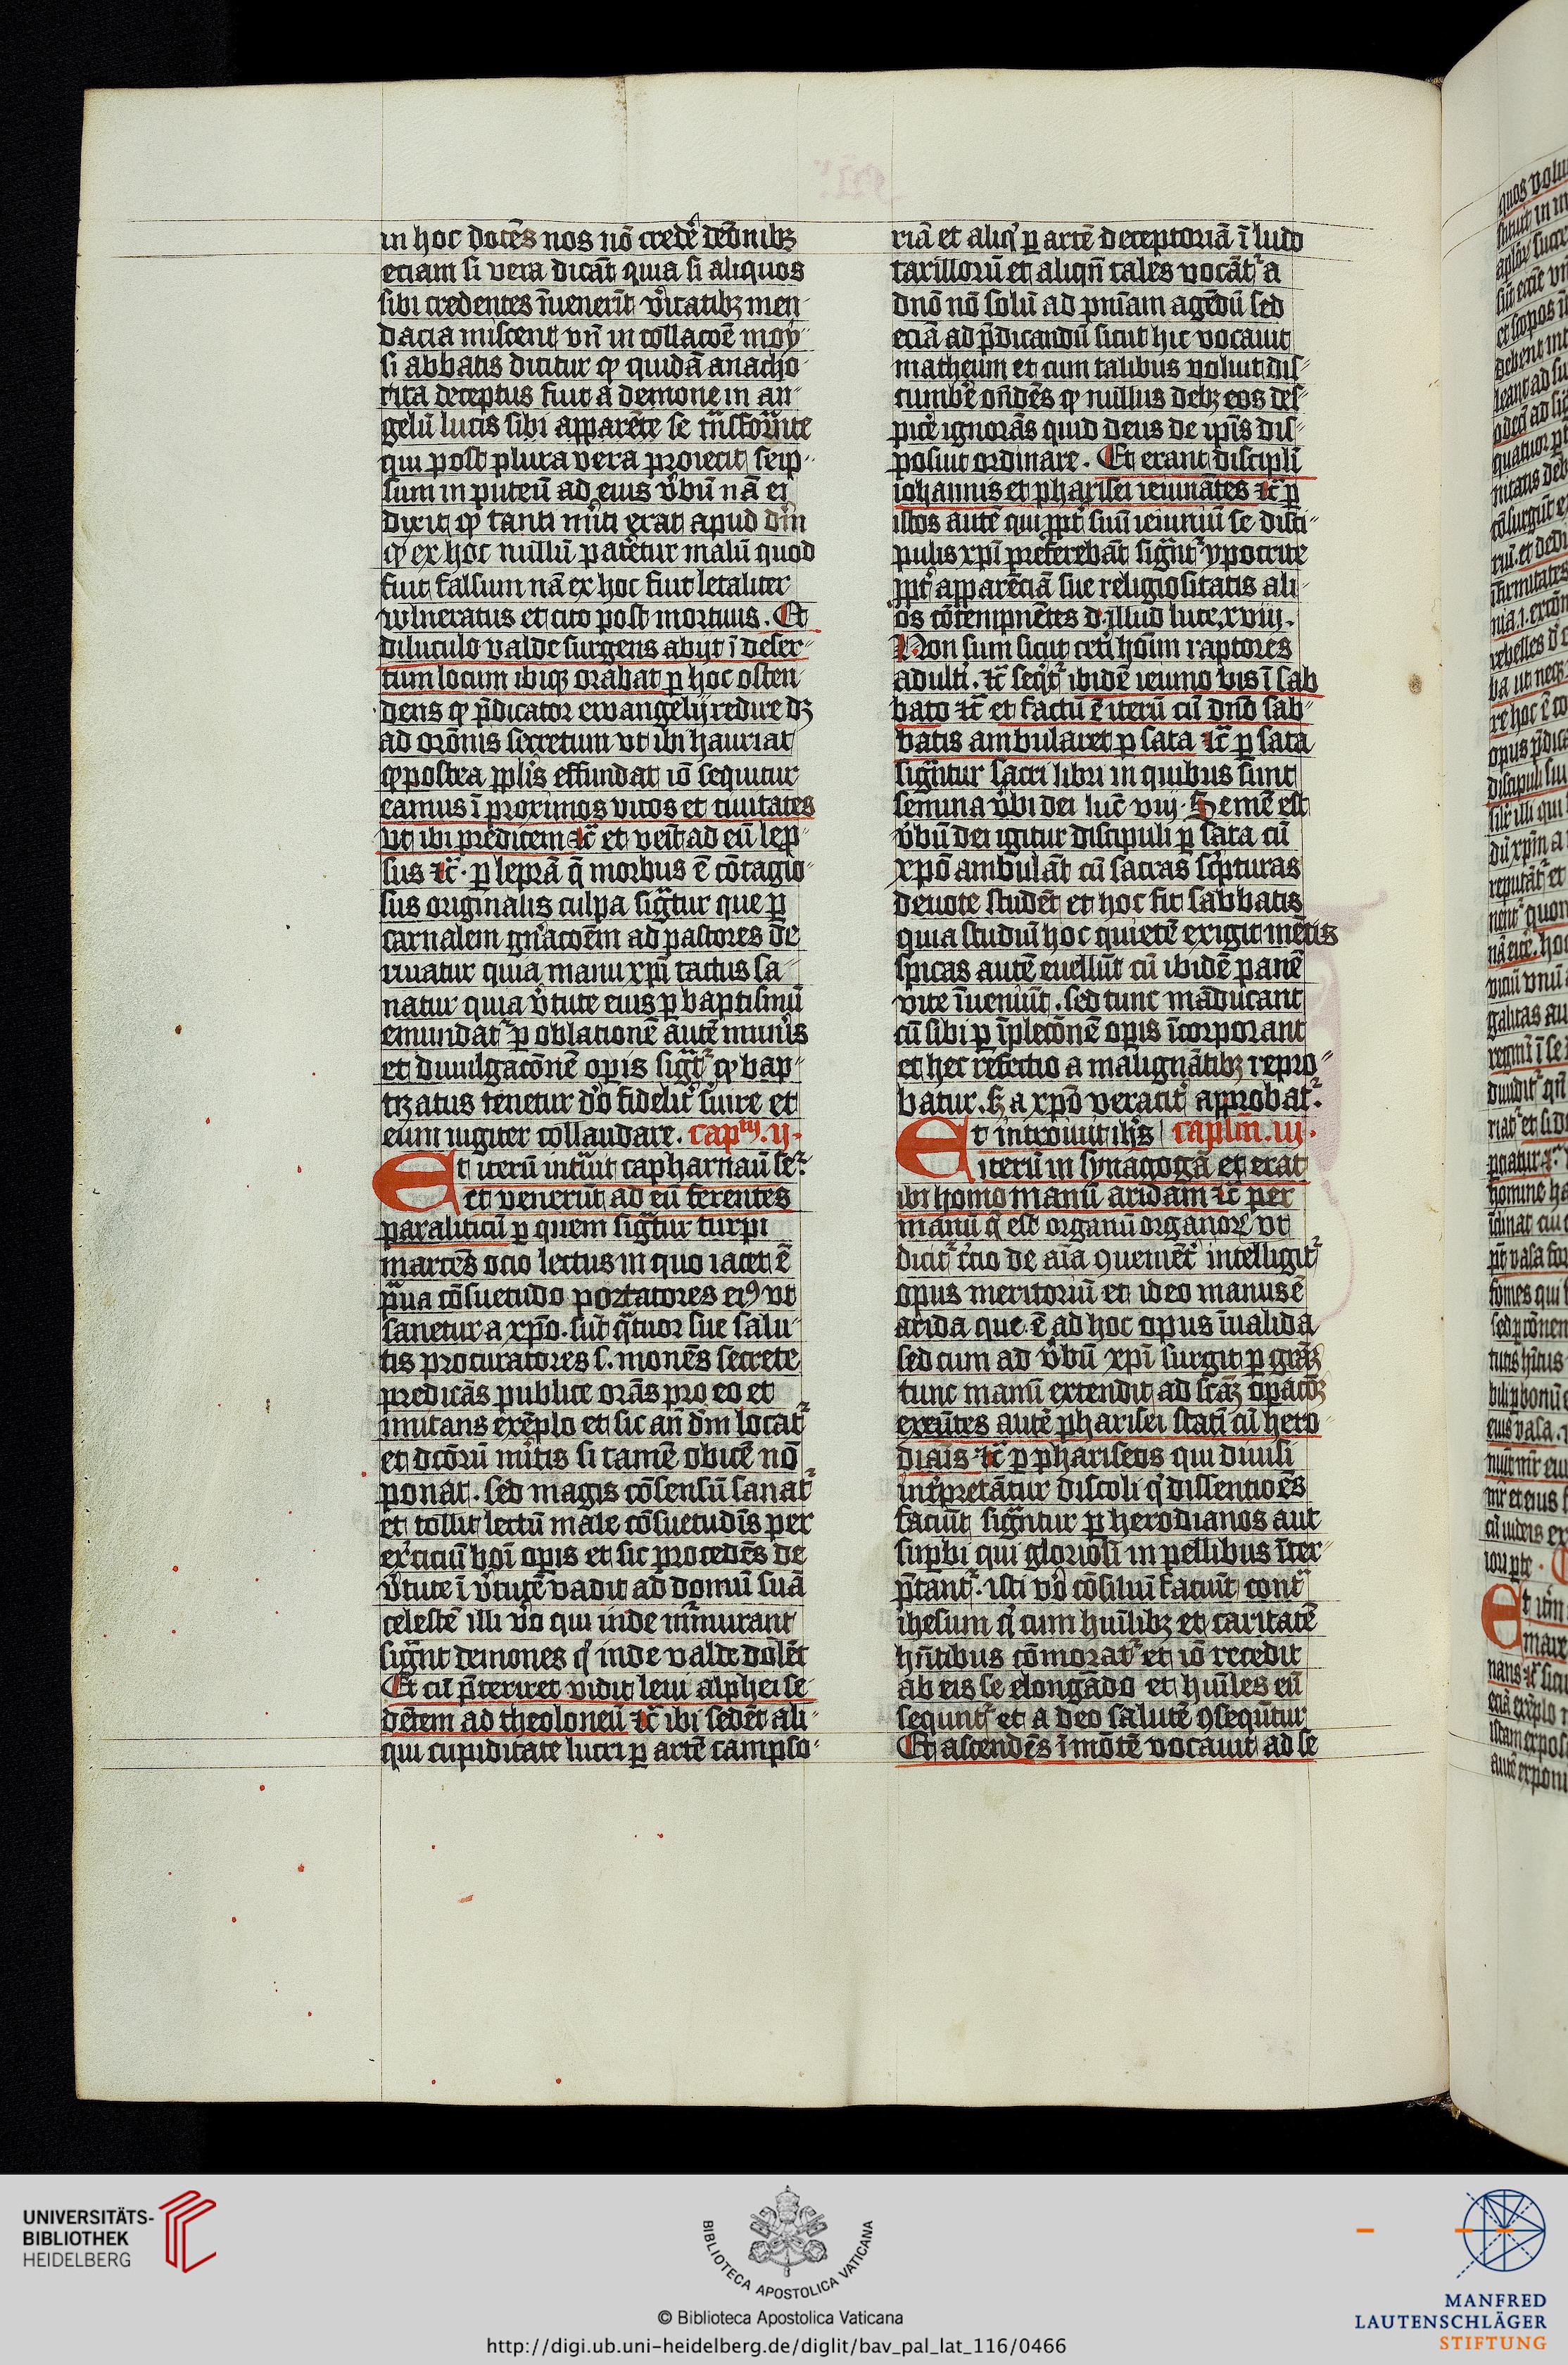 in hoc docēs nos nō credē demōibꝫ
eciam si vera dicāt quia si aliquos
sibi credentes īuenerīt v̉itatibꝫ men
dacia miscent vn̄ in collacōe moy
si abbatis dicitur ꝙ quidā anacho
rita deceptus fuit a demone in an
gelū lucis sibi apparēte se tn̄sformāte
qui post plura vera proiecit seip
sum in puteū ad eius v̉bū nā ei
dixit ꝙ tanti mīti erat apud dīn
ꝙ ex hoc nullū pateretur malū quod
fuit falsum nā ex hoc fuit letaliter
wlneratus et cito post mortuus. Et
diluculo valde surgens abijt ī deser
tum locum ibiqꝫ orabat ꝑ hoc osten
dens ꝙ p̄dicator ewangelij redire dꝫ
ad orōnis secretum vt ibi hauriat
ꝙ postea pplis effundat iō sequitur
eamus ī proximos vicos et ciuitates
vt ibi predicem ⁊c̄ et venīt ad eū lep
sus ⁊c̄. ꝑ leprā q̄ morbus ē cōtagio
sus originalis culpa sigꝰtur que ꝑ
carnalem gn̄acoēm ad pastores de
riuatur quia manu xpī tactus sa
natur quia v̉tute eius ꝑ baptismū
emundatᷣ ꝑ oblationē autē munīs
et diuulgacōnē opis sigtᷣ ꝙ bap
tizatus tenetur d̉o fidelit̉ suire et
eum iugiter collaudare. capᵗᵐ. ij.
Et iterū intuit capharnaū ⁊c̄
et venerūt ad eū ferentes
paraliticū ꝑ quem sigtur turpi
marcēs ocio lectus in quo iacet ē
p̄ua cōsuetudo portatores eiꝰ vt
sanetur a xpō. sūt qtuor sue salu
tis procuratores s. monēs secrete
predicās publice orās pro eo et
imitans exēplo et sic an̄ dīm locatᷣ
et dcōrū mītis si tamē obicē nō
ponat. sed magis cōsensū sanatᷣ
et tollit lectū male cōsuetudīs per
ex̉citiū boī opis et sic procedēs de
v̉tute ī v̉tutē vadit ad domū suā
celestē illi v̉o qui inde mr̄murant
signt demones ꝙ inde valde dolēt
Et cū p̄teriret vidit leui alphei se
dētem ad theoloneū ⁊c̄ ibi sedēt ali
qui cupiditate lucri ꝑ artē campso
riā et aliq̉ ꝑ artē deceptoriā ī ludo
taxillorū et aliqn̄ tales vocātᷣ a
dnō nō solū ad pn̄iam agēdū sed
eciā ad p̄dicandū sicut hic vocauit
matheum et cum talibus voluit dis
cumbē on̄dēs ꝙ nullus debꝫ eos des
picē ignorās quid deus de ipīs dis
posuit ordinare. Et erant discipli
iohannis et pharisei ieiunātes ⁊c̄ ꝑ
istos autē qui ꝓpt̉ suū ieiuniū se disci
pulis xpī preferebāt signtᷣ ypocrite
ꝓpt̉ apparēciā sue religiositatis ali
os cōtempnētes d. illud luce. xviij.
Non sum sicut ceti hoīm raptores
adulti. ⁊c̄ seqtᷣ ibidē ieiuno bis ī sab
bato ⁊c̄ et factū ē iterū cū dnō sab
batis ambularet ꝑ sata ⁊c̄ ꝑ sata
signtur sacri libri in quibus sunt
semina v̉bi dei luc̄ viij. Semē est
v̉bū dei igitur discipuli ꝑ sata cū
xpō ambulāt cū sacras sc̉pturas
deuote studēt et hoc fit sabbatis
quia studiū hoc quietē exigit mētis
spicas autē euellūt cū ibidē panē
vite īueniūt. sed tunc māducant
cū sibi ꝑ īpletōnē opis īcorporant
et hec refectio a malignātibꝫ repro
batur. sꝫ a xpō veracit̉ approbatᷣ.
Et introiuit ih̄s caplm. iij.
iterū in synagogā et erat
ibi homo manū aridam ⁊c̄ per
manū q̄ est organū organoꝝ vt
dicitᷣ t̉cio de aīa ꝯuenīet̉ intelligitᷣ
opus meritoriū et ideo manus ē
arida que ē ad hoc opus īualida
sed cum ad v̉bū xpī surgit ꝑ grāꝫ
tunc manū extendit ad scāꝫ opacōꝫ
exeūtes autē pharisei statī cū hero
dianīs ⁊c̄ ꝑ phariseos qui diuisi
int̉pretātur discoli q̉ dissentioēs
faciūt signtur ꝑ herodianos aut
suꝑbi qui gloriosi in pellibus īter
p̄tantᷣ. isti v̉o cōsiliū faciūt cont̄
ihesum q̉ cum hūilibꝫ et caritatē
hn̄tibus cōmoratᷣ et iō recedit
ab eis se elongādo et hūiles eū
sequntᷣ et a deo salutē ꝯsequūtur
Et ascendēs ī mōtē vocauit ad se
UNIVERSITÄTS-
BIBLIOTHEK
HEIDELBERG
BIBLIOTECA APOSTOLICA VATICANA
© Biblioteca Apostolica Vaticana
http://digi.ub.uni-heidelberg.de/diglit/bav_pal_lat_116/0466
MANFRED
LAUTENSCHLÄGER
STIFTUNG